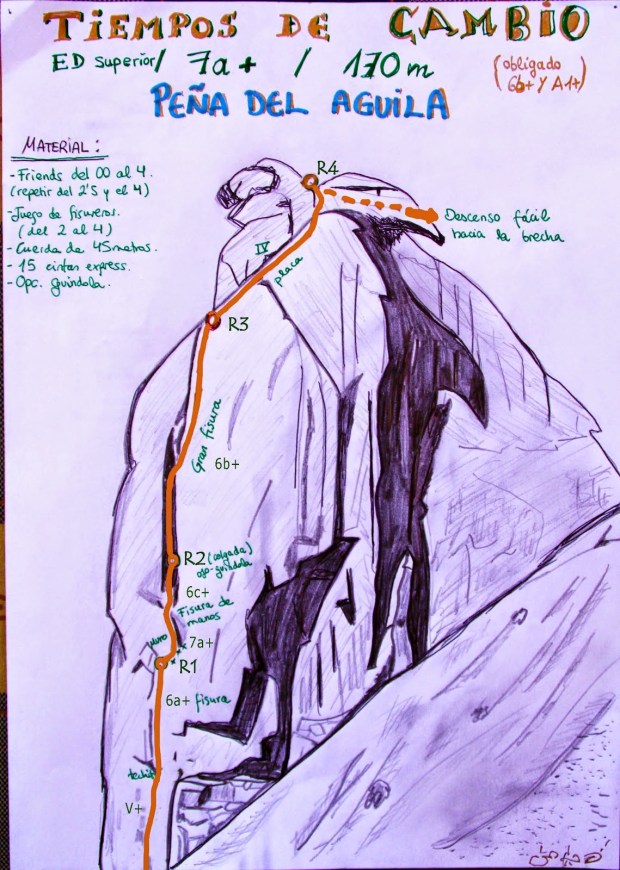 TiEMPOS DE CAMBIO
ED superior/ 7a+ / 170m
(obligado
6b+ Y A1+)
PEÑA DEL AGUILA
MATERIAL:
- Friends del 00 al 4.
(repetir del 2'S y el 4)
-Juego de fisureros.
(del 2 al 4)
- Cuerda de 45metros.
- 15 cintas express.
- Opc. guindola.
R4
Descenso fácil
hacia la brecha
IV
placa
R3
Gran fisura
6b+
R2 (colgada)
ojo-guindola
6c+
Fisura de
manos
Muro
7a+
R1
6a+ fisura
techito
V+